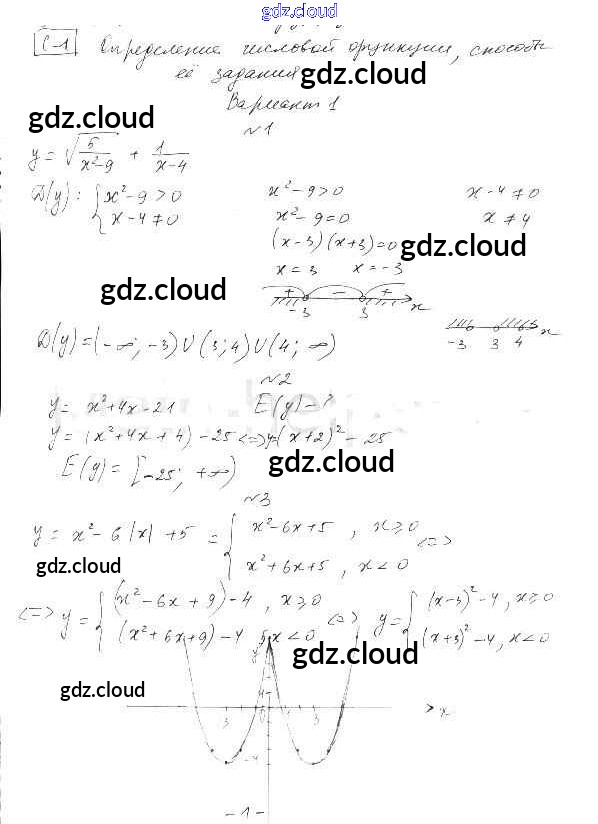 gdz.cloud
С-1 Определение числовой функции, способы
её задания
gdz.cloud
Вариант 1
gdz.cloud
№1
y = √(5/(x²-9)) + 1/(x-4)
D(y): { x²-9>0
x-4≠0
x²-9>0
x²-9=0
(x-3)(x+3)=0
x=3 x=-3
x-4≠0
x≠4
gdz.cloud
gdz.cloud
+ - +
-3 3 x
-3 3 4 x
D(y)=(-∞; -3)∪(3;4)∪(4; ∞)
№2
y= x²+4x-21 E(y)-?
y= (x²+4x+4)-25 <=> y=(x+2)²-25
E(y)= [-25; +∞)
gdz.cloud
№3
y= x²-6|x|+5 = { x²-6x+5, x≥0
x²+6x+5, x<0 <=>
gdz.cloud
<=> y= { (x²-6x+9)-4, x≥0
(x²+6x+9)-4, x<0
<=> y= { (x-3)²-4, x≥0
(x+3)²-4, x<0
gdz.cloud
gdz.cloud
y 5
3 0 3 x
-4
- 1 -